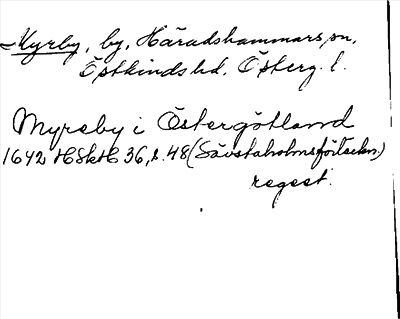 Myrby, by, Häradshammars sn,
Östkinds hd, Österg. l.
Myreby i Östergötland
1642 HSkH 36, s. 48 (Sävstaholmsförteckn.)
regest.